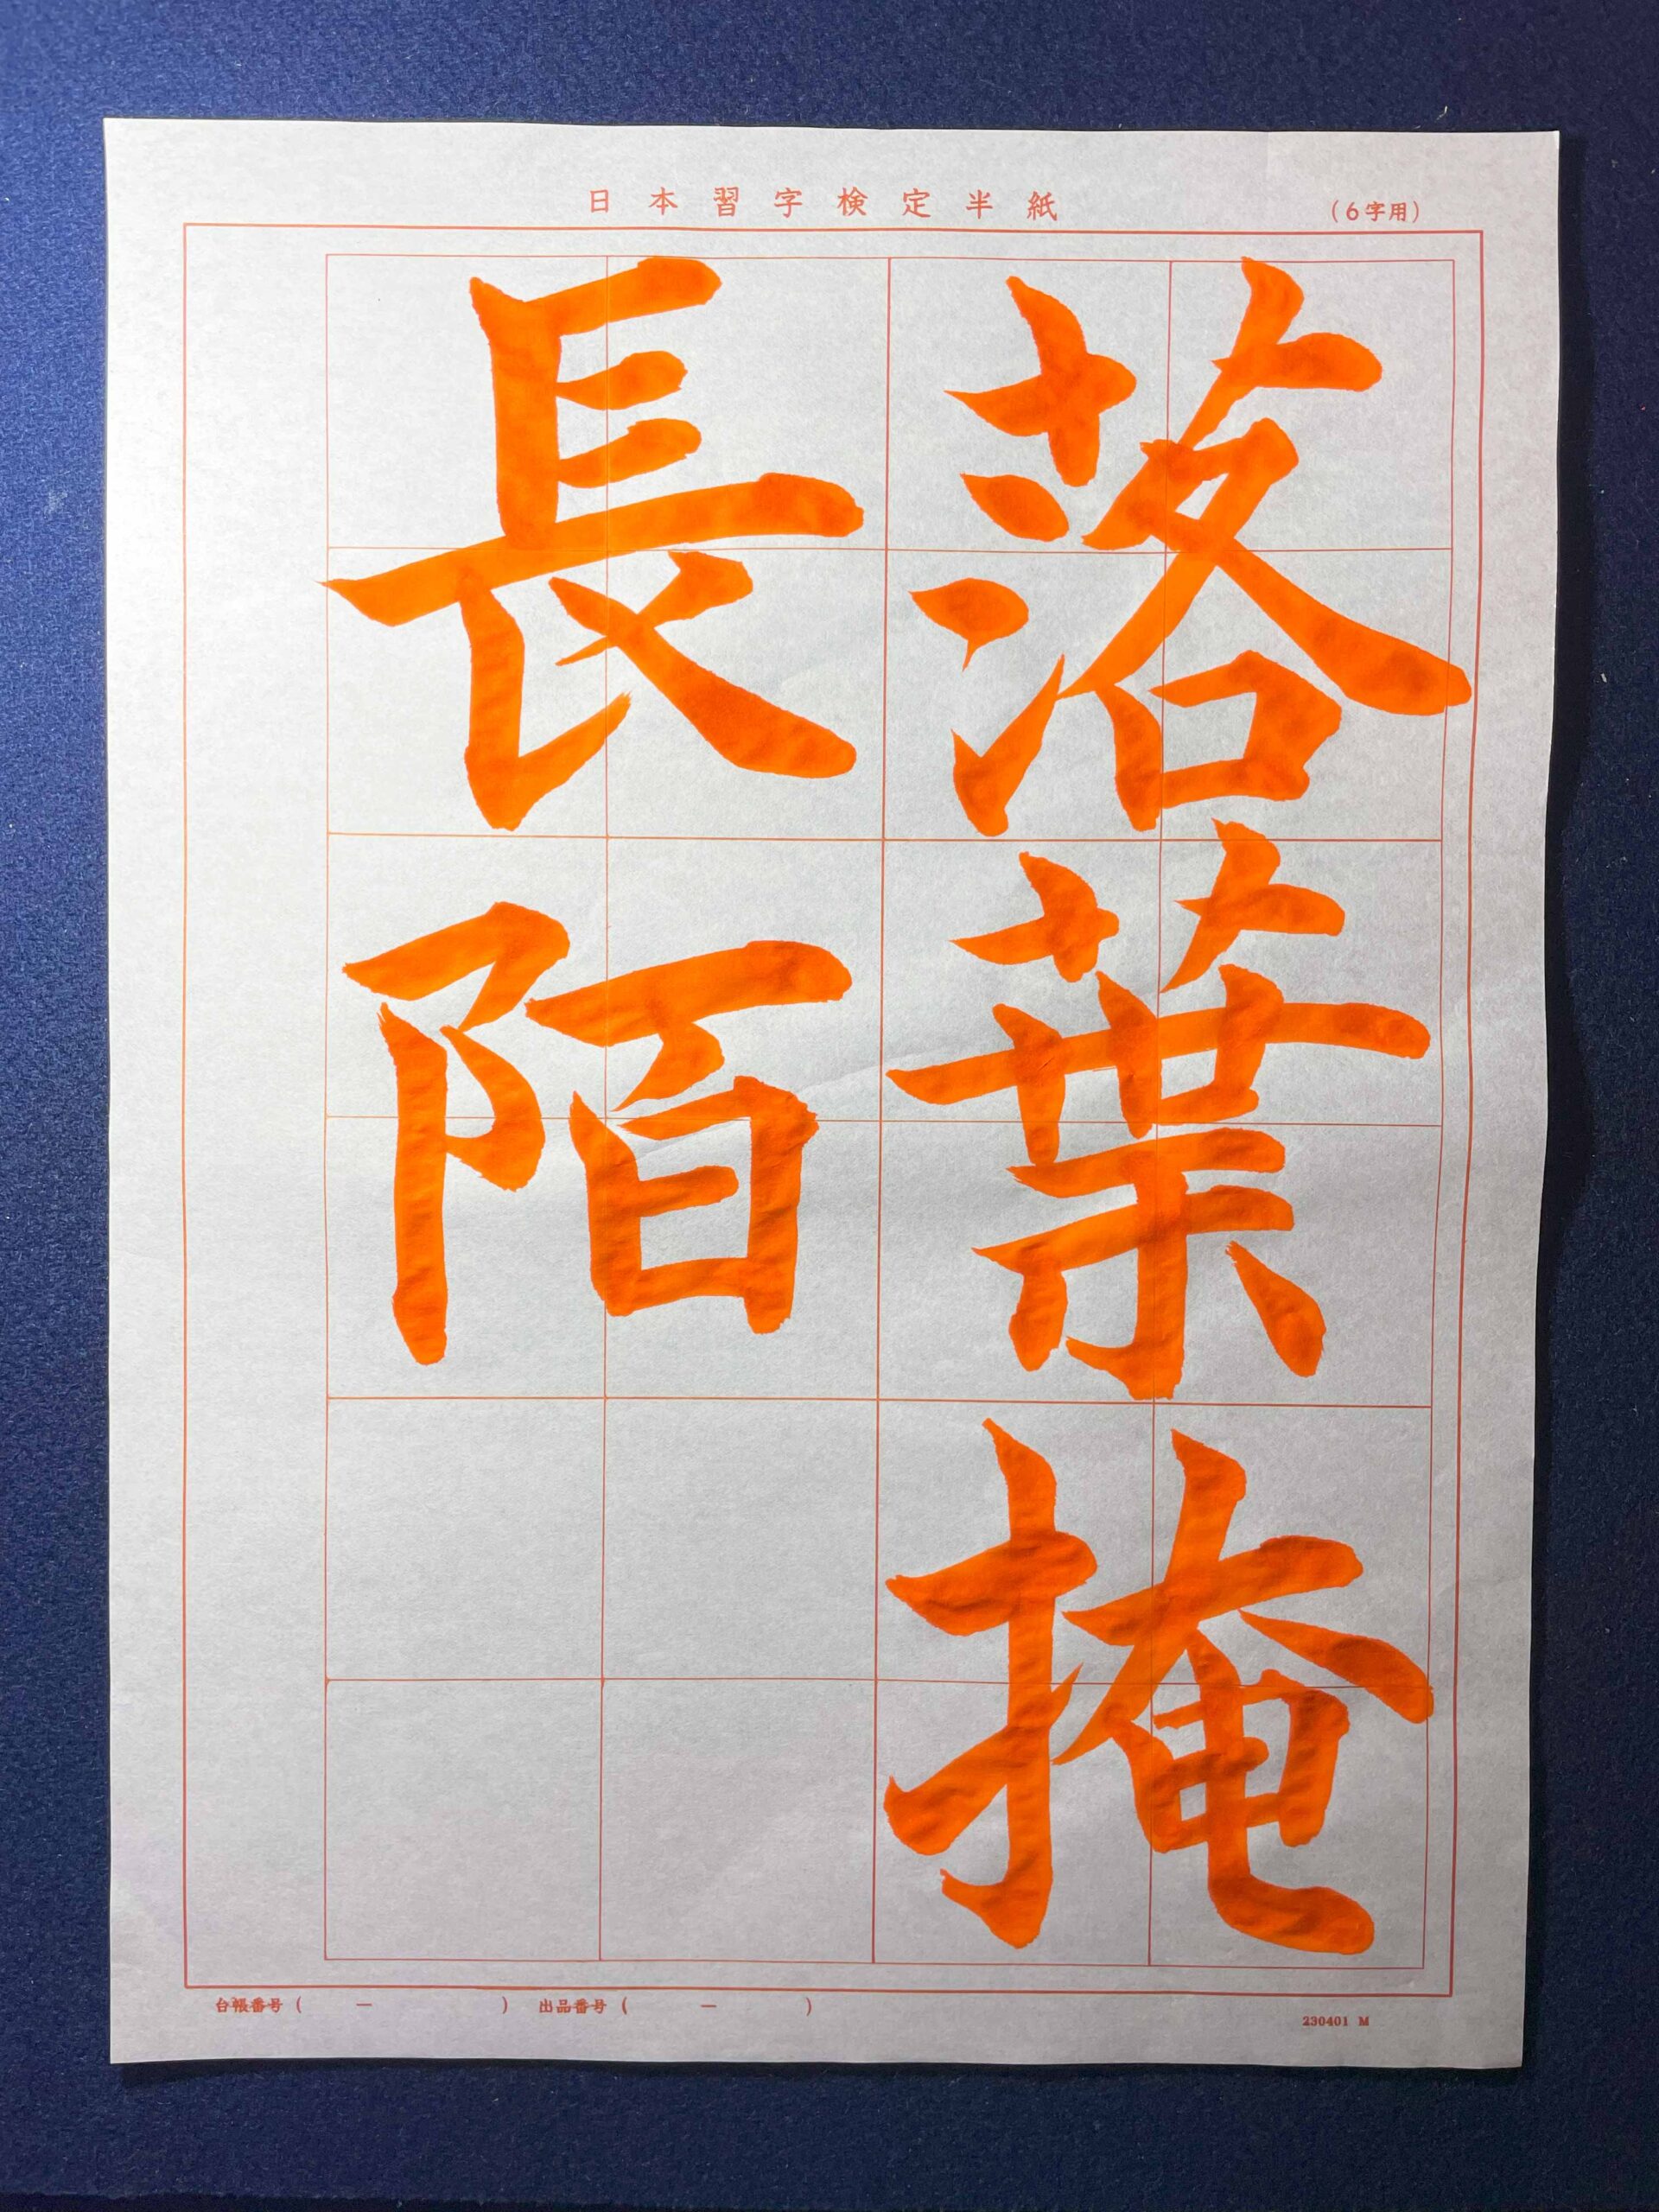 日本習字検定半紙
(6字用)
落葉掩
長陌
台帳番号 ( － ) 出品番号 ( － )
230401 M